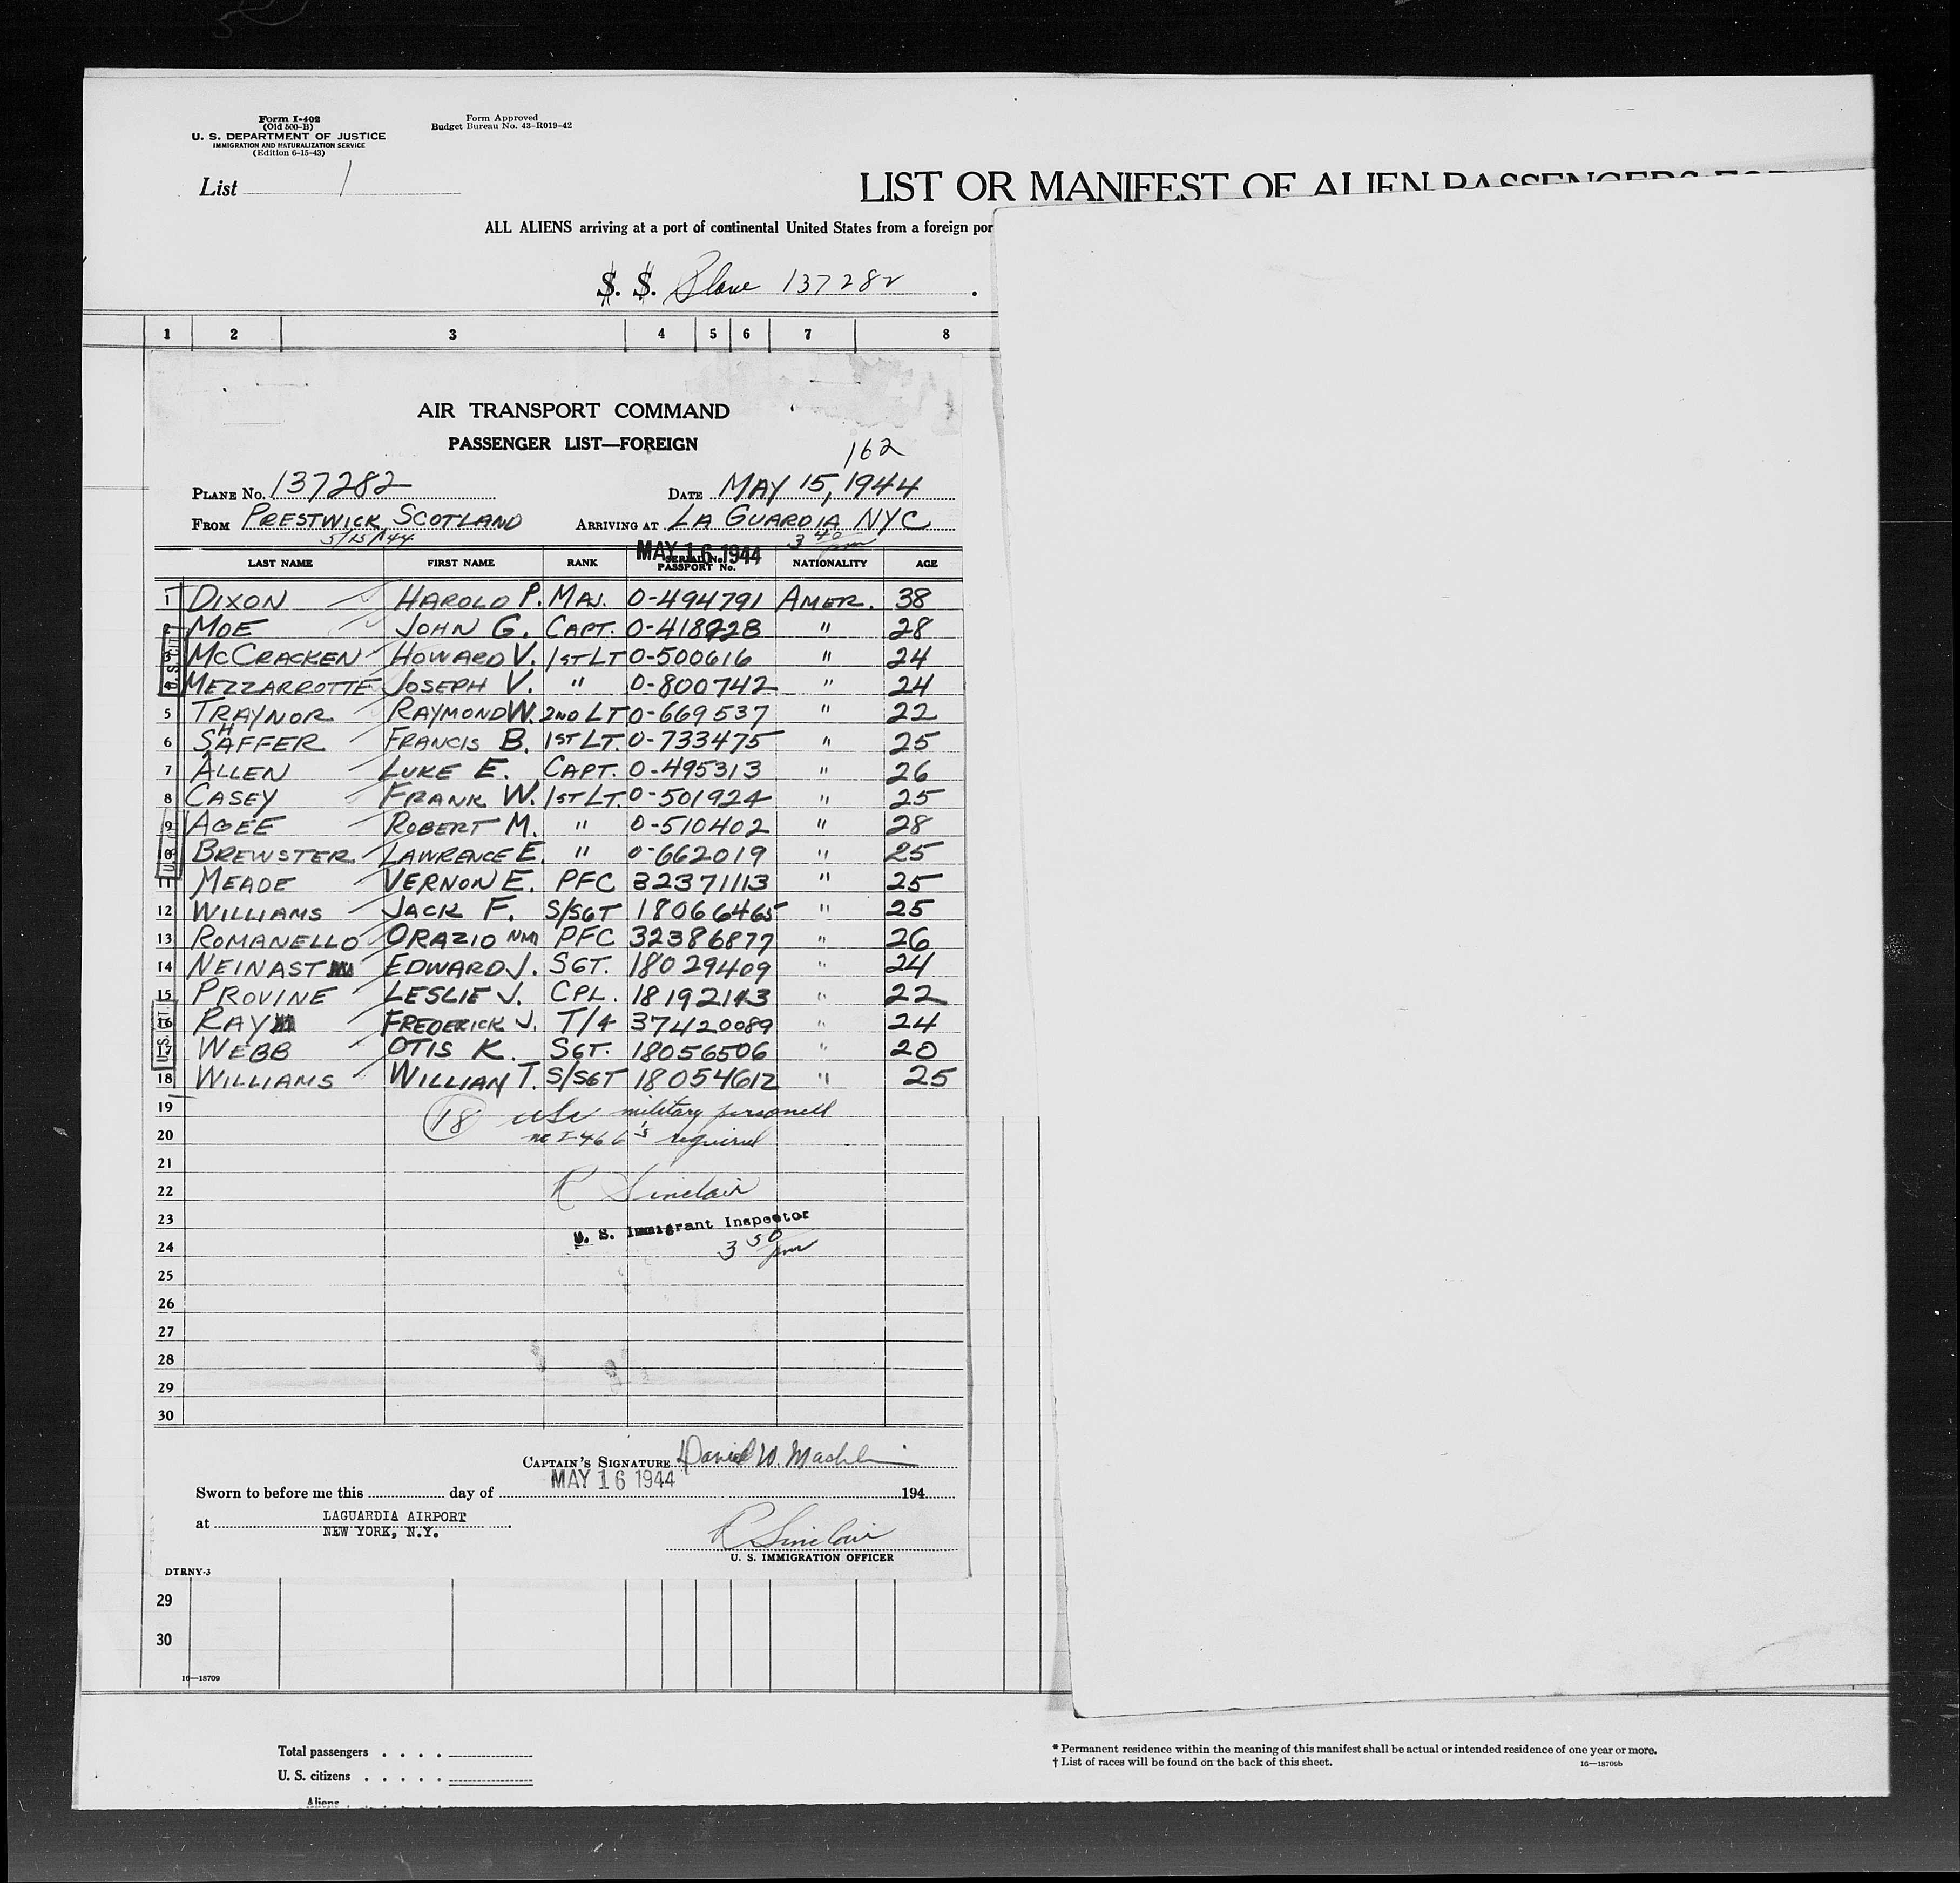 Form I-402
(Old 500-B)
U. S. DEPARTMENT OF JUSTICE
IMMIGRATION AND NATURALIZATION SERVICE
(Edition 6-15-43)
Form Approved
Budget Bureau No. 43-R019-42
List 1
LIST OR MANIFEST OF ALIEN PASSENGERS FOR
ALL ALIENS arriving at a port of continental United States from a foreign por
S. S. Plane 137282
1 2 3 4 5 6 7 8
AIR TRANSPORT COMMAND
PASSENGER LIST—FOREIGN
162
PLANE No. 137282 DATE MAY 15, 1944
FROM PRESTWICK, SCOTLAND ARRIVING AT LA GUARDIA NYC
5/15/44 MAY 16 1944 3 40 pm
LAST NAME FIRST NAME RANK SERIAL No. PASSPORT No. NATIONALITY AGE
1 DIXON HAROLD P. MAJ. 0-494791 AMER. 38
2 MOE JOHN G. CAPT. 0-418928 " 28
3 MCCRACKEN HOWARD V. 1ST LT 0-500616 " 24
4 MEZZARROTTE JOSEPH V. " 0-800742 " 24
5 TRAYNOR RAYMOND W. 2ND LT 0-669537 " 22
6 SHAFFER FRANCIS B. 1ST LT. 0-733475 " 25
7 ALLEN LUKE E. CAPT. 0-495313 " 26
8 CASEY FRANK W. 1ST LT. 0-501924 " 25
9 AGEE ROBERT M. " 0-510402 " 28
10 BREWSTER LAWRENCE E. " 0-662019 " 25
11 MEADE VERNON E. PFC 32371113 " 25
12 WILLIAMS JACK F. S/SGT 18066465 " 25
13 ROMANELLO ORAZIO NMI PFC 32386877 " 26
14 NEINAST EDWARD J. SGT. 18029409 " 24
15 PROVINE LESLIE J. CPL. 18192143 " 22
16 RAY FREDERICK J. T/4 37420089 " 24
17 WEBB OTIS K. SGT. 18056506 " 20
18 WILLIAMS WILLIAN T. S/SGT 18054612 " 25
19 18 usc military personell
20 no I-466's required
21
22 R Sinclair
23 U. S. Immigrant Inspector
24 3 50 pm
25
26
27
28
29
30
CAPTAIN'S SIGNATURE David W.
MAY 16 1944
Sworn to before me this day of 194
at LAGUARDIA AIRPORT
NEW YORK, N.Y.
R Sinclair
U. S. IMMIGRATION OFFICER
DTRNY-3
29
30
16—18709
Total passengers . . . .
U. S. citizens . . . . .
Aliens
* Permanent residence within the meaning of this manifest shall be actual or intended residence of one year or more.
† List of races will be found on the back of this sheet.
16—18709b